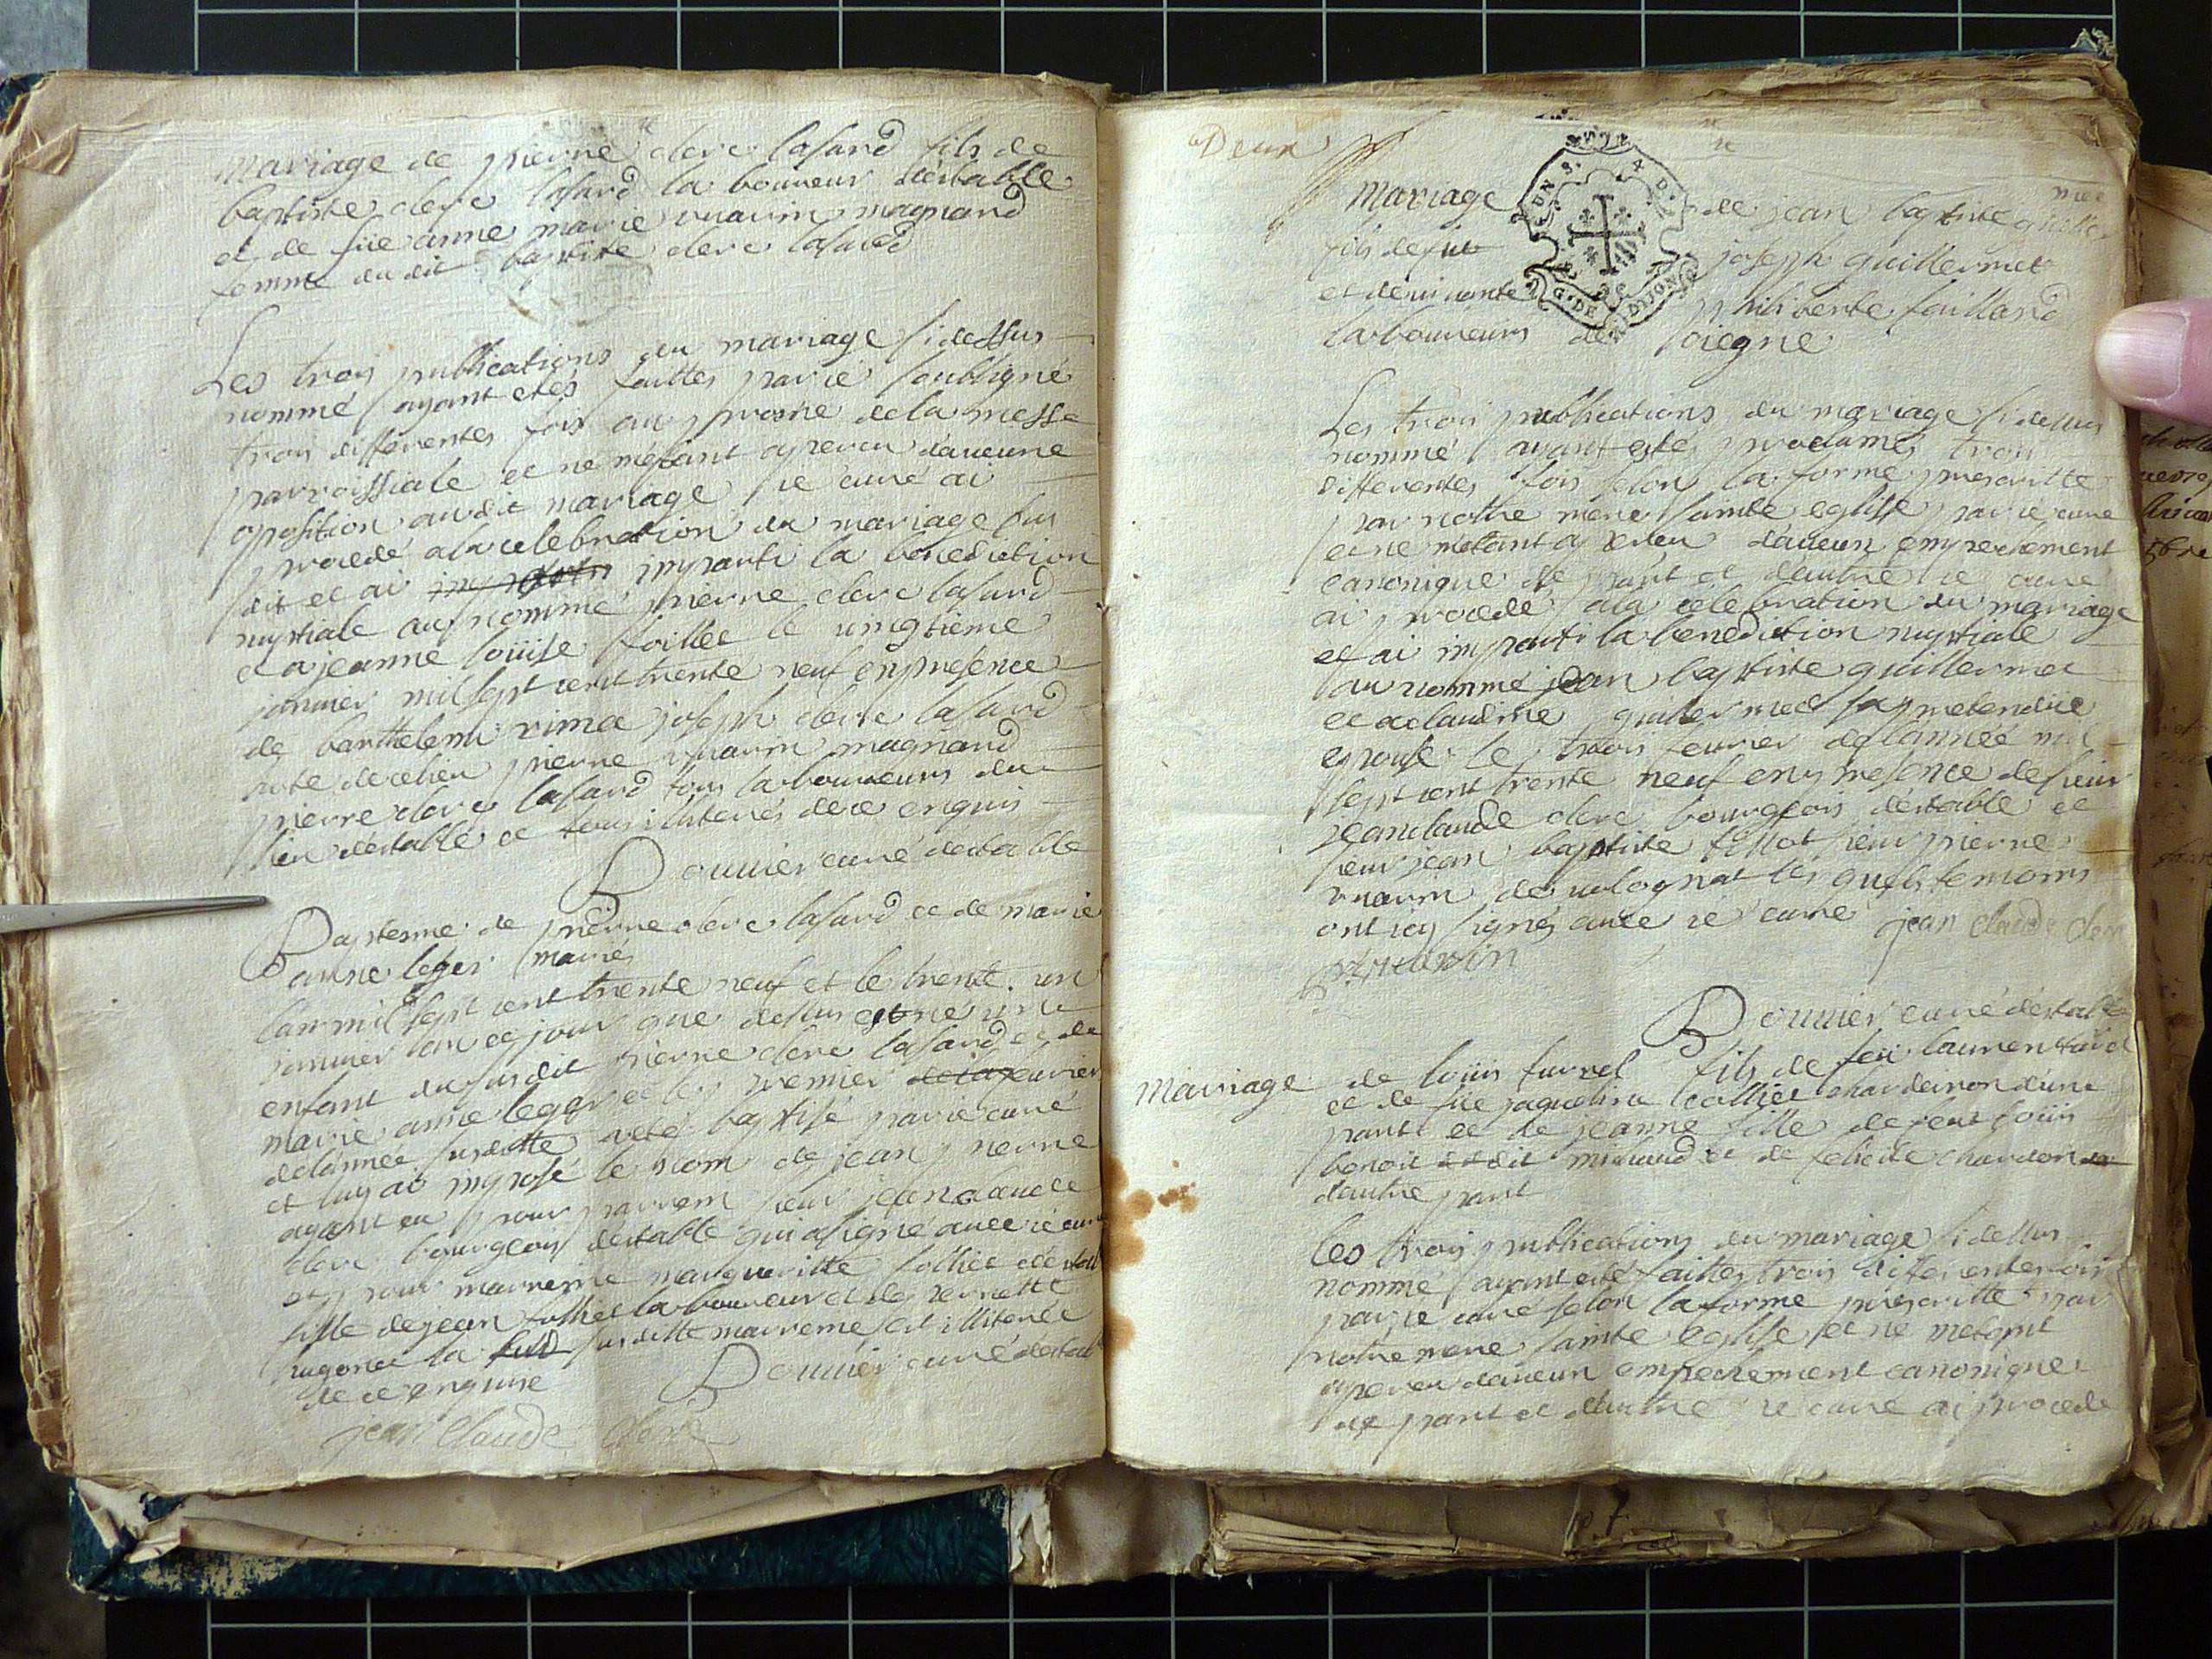 mariage de pierre clerc lasard fils de
baptiste clerc lasard la boureur destable
et de füe anne marie vuarin magnand
femme du dit baptiste clerc lasard
Les trois publications du mariage si dessus
nommé ayant etés faittes par ié soubsigné
trois differentes fois au prosne de la messe
parroissiale et ne métant aperceu daucune
oposition au dit mariage ie curé ai
procedé a la celebration du mariage sus
dit et ai imparti la benediction
nuptiale au nommé pierre clerc lasard
et a jeanne loüise follict le vingtieme
janvier mil sept cent trente neuf en presence
de barthelemi rimoz joseph clerc lasard
pierre vuarin magnand
pierre clerc lasard tous laboureurs du
lieu destable et tous iliterés de ce enquis
Bouvier curé destable
Baptesme de pierre clerc lasard et de marie
anne leger mariés
lan mil sept cent trente neuf et le trente un
janvier lan et jour que dessus est né un
enfant du susdit pierre clerc lasard et de
marie anne leger et le premier fevrier
delannée susditte a eté baptisé par ie curé
et luy ai imposé le nom de jean pierre
ayant eu pour parrein sieur jean claude
clerc bourgeois destable qui a signé avec ie curé
et pour marreine margueritte follict destable
fille de jean follict laboureur et de pernette
la susditte marreine est illiterée
de ce enquise
Bouvier curé destable
jean Claude clerc
Deux
mariage de jean baptiste guillermet
fils de fut joseph guillermet
et de vivante philiberte failland
laboureurs de
G. DE DIJON
Les trois publications du mariage si dessus
nommé ayant esté proclamé trois
differentes fois selon la forme prescritte
par nottre mere sainte eglise par ié curé
et ne métant aperceu daucun empechement
canonique de part et dautre ie curé
ai procedé a la celebration du mariage
et ai imparti la benediction nuptiale
au nommé jean baptiste guillermet
et a claudine guillermet sa pretendüe
epouse le trois fevrier de lannée mil
sept cent trente neuf en presence de sieur
jean claude clerc bourgeois destable et
sieur jean baptiste sieur pierre
vuarin de volognat les quels temoins
ont icy signés avec ié curé jean claude clerc
P. Vuarin
Bouvier curé destable
Mariage de loüis furnel fils de feü laurent
et de füe jaqueline collict chardeiron dune
part et de jeanne fille de feut loüis
benoit dit michaud et de felicité chardon
dautre part
les trois publications du mariage si dessus
nommé ayant eté faittes trois differentes fois
par ie curé selon la forme prescritte par
nottre mere sainte eglise et ne métant
aperceu daucun empechement canonique
de part et dautre ie curé ai procedé